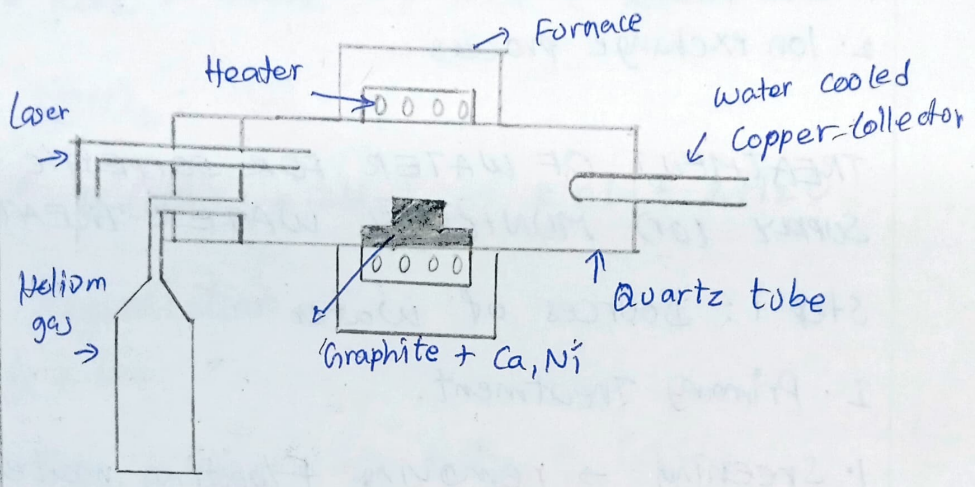 Furnace
Heater
Laser
Water cooled
Copper-Collector
Helium
gas
Quartz tube
Graphite + Ca, Ni